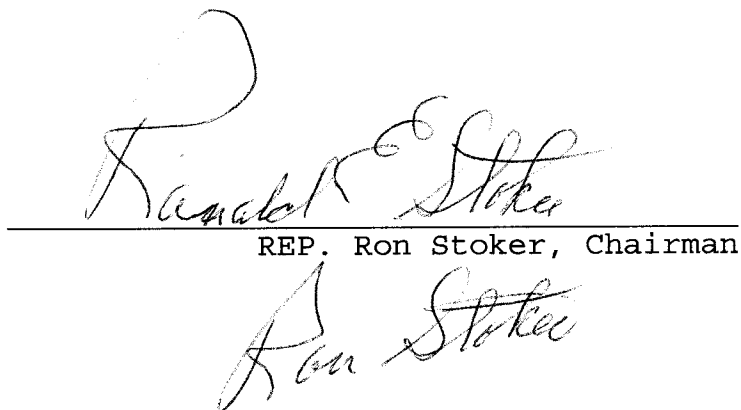 Ronald E Stoker
REP. Ron Stoker, Chairman
Ron Stoker